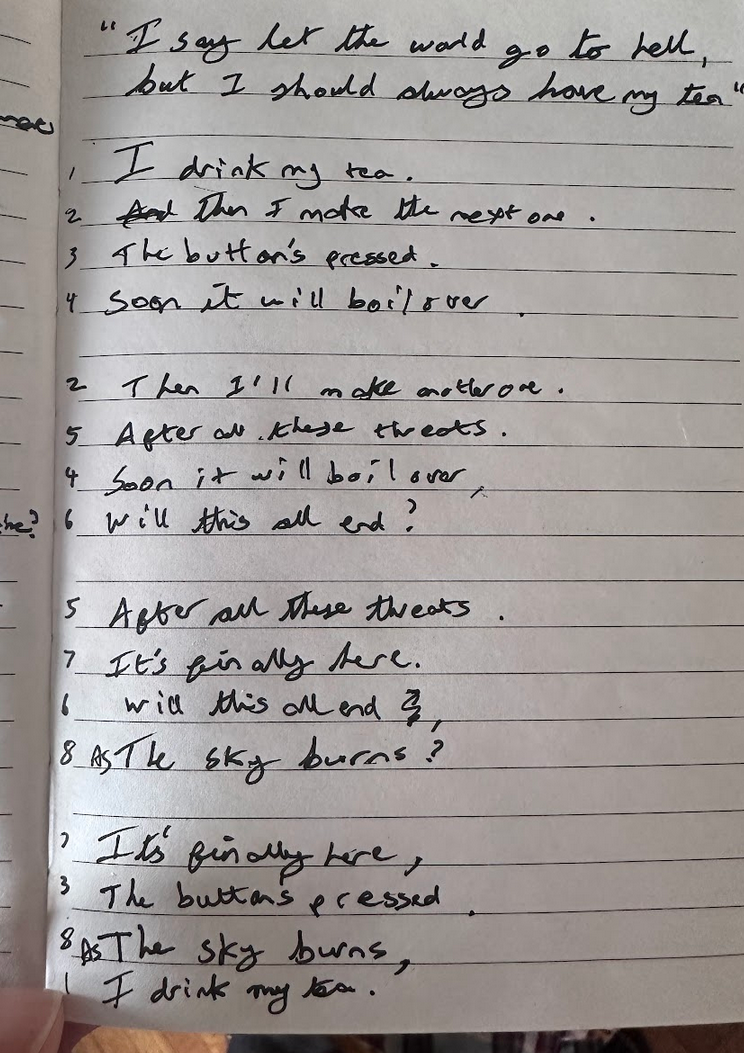 "I say let the world go to hell,
but I should always have my tea"
1 I drink my tea.
2 And Then I make the next one.
3 The button's pressed.
4 Soon it will boil over.
2 Then I'll make another one.
5 After all these threats.
4 Soon it will boil over,
6 Will this all end?
5 After all these threats.
7 It's finally here.
6 Will this all end?,
8 As The sky burns?
7 It's finally here,
3 The button's pressed.
8 As The sky burns,
1 I drink my tea.